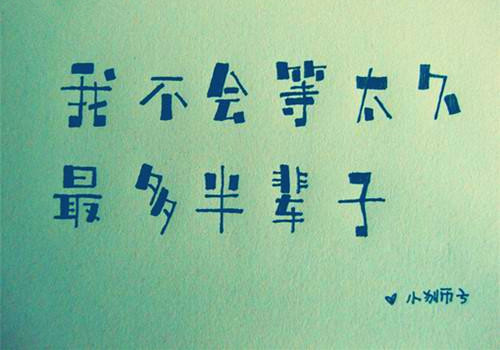 我不会等太久
最多半辈子
♥ 小狮子